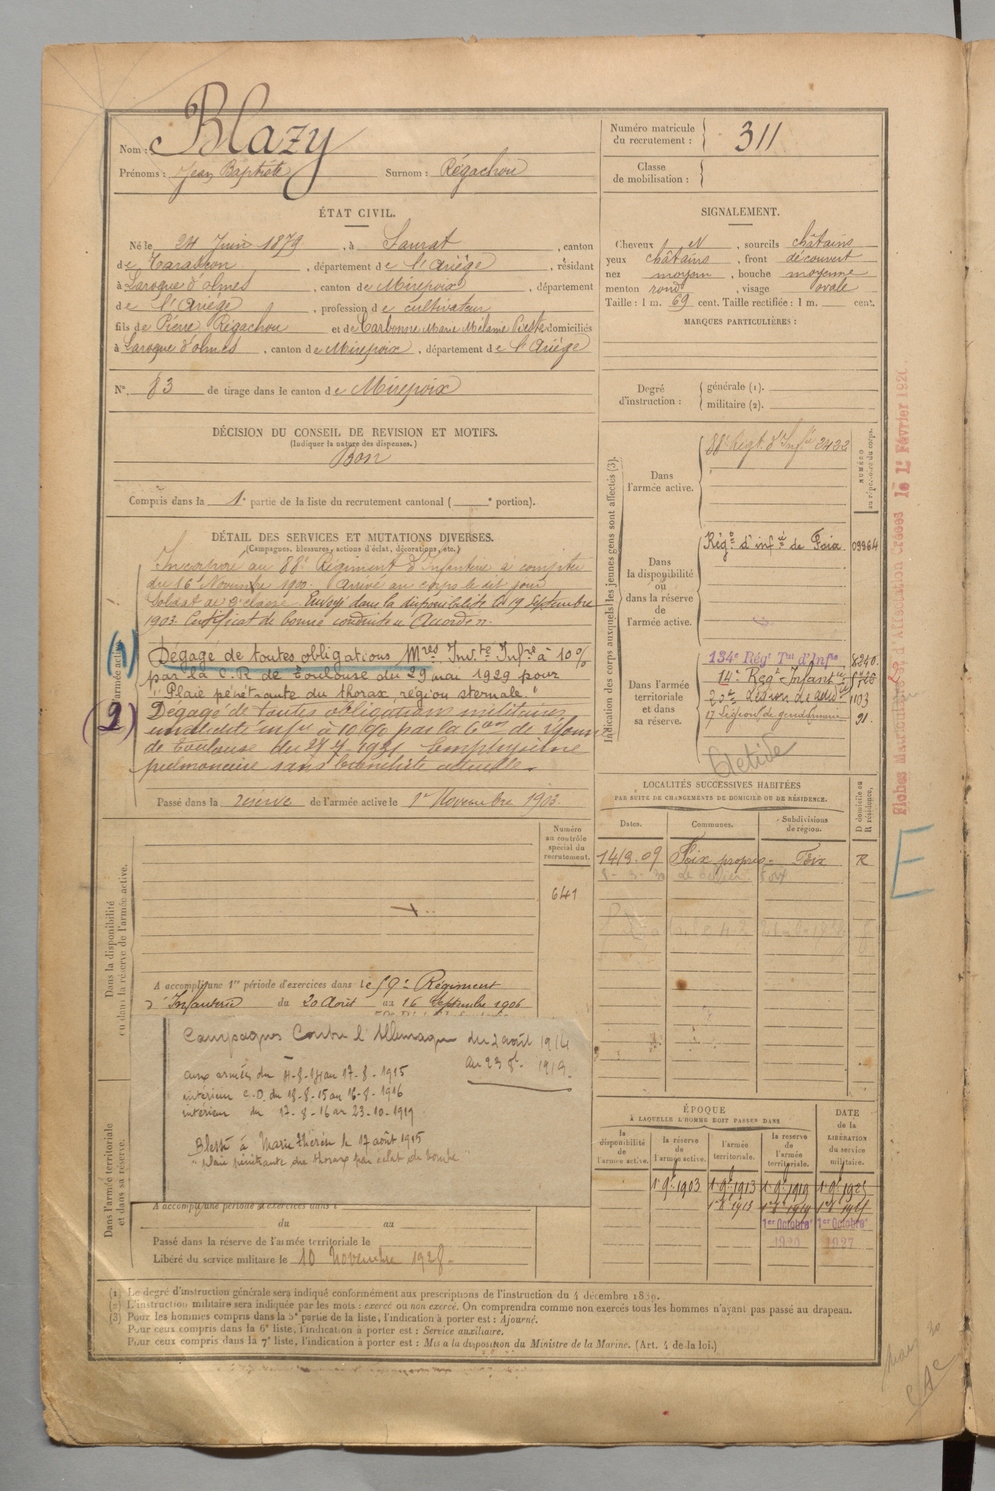 Nom : Blazy
Prénoms : Jean Baptiste Surnom : Régachou
Numéro matricule du recrutement : 311
Classe de mobilisation :
ÉTAT CIVIL.
Né le 24 Juin 1879, à Saurat, canton
de Tarascon, département de l'Ariège, résidant
à Laroque d'olmes, canton de Mirepoix, département
de l'Ariège, profession de cultivateur
fils de Pierre Régachou et de Carbonne Marie Mélanie domiciliés
à Laroque d'olmes, canton de Mirepoix, département de l'Ariège
N° 83 de tirage dans le canton de Mirepoix
SIGNALEMENT.
Cheveux N, sourcils châtains
yeux châtains, front découvert
nez moyen, bouche moyenne
menton rond, visage ovale
Taille : 1 m. 69 cent. Taille rectifiée : 1 m. cent.
MARQUES PARTICULIÈRES :
Degré d'instruction : générale (1).
militaire (2).
DÉCISION DU CONSEIL DE REVISION ET MOTIFS.
(Indiquer la nature des dispenses.)
Bon
Compris dans la 1e partie de la liste du recrutement cantonal ( e portion).
DÉTAIL DES SERVICES ET MUTATIONS DIVERSES.
(Campagnes, blessures, actions d'éclat, décorations, etc.)
Incorporé au 88e Régiment d'Infanterie à compter
du 16 Novembre 1900. Arrivé au corps le dit jour
soldat de 2e classe. Envoyé dans la disponibilité le 19 Septembre
1903. Certificat de bonne conduite Accordé.
(1)
Dégagé de toutes obligations Mres Inv.té Infre à 10 %
par la C.R. de Toulouse du 29 mai 1929 pour
"Plaie pénétrante du thorax, région sternale."
(2)
Dégagé de toutes obligations militaires
invalidité infre à 10 % par la
de Toulouse du Emphysème
pulmonaire sans actuelle.
Passé dans la réserve de l'armée active le 1er Novembre 1903.
Indication des corps auxquels les jeunes gens sont affectés (3).
NUMÉRO au répertoire du corps.
Dans l'armée active.
88e Régt d'Infie 2433
Dans la disponibilité ou dans la réserve de l'armée active.
Régt d'infie de Foix 09964
Dans l'armée territoriale et dans sa réserve.
134e Régt Tal d'Infie 8240
14e Régt Infant
Légion de 1103
17 Légion de gendarmerie 91
Fiches Matricules d'Affectation créées le 1er Février 192
E
LOCALITÉS SUCCESSIVES HABITÉES
PAR SUITE DE CHANGEMENTS DE DOMICILE OU DE RÉSIDENCE.
Dates. Communes. Subdivisions de région. D domicile ou R résidence.
14/3.09 Foix propre Foix R
Dans la disponibilité ou dans la réserve de l'armée active.
Numéro au contrôle spécial du recrutement.
641
A accompli une 1re période d'exercices dans le 59e Régiment
d'Infanterie du 20 Août au 16 Septembre 1906
Campagnes Contre l'Allemagne du 2 août 1914
au 23 8bre 1919.
aux armées du 4-8-14 au 17-8-1915
intérieur C.D. du 18-8-15 au 16-8-1916
intérieur du 17-8-16 au 23-10-1919
Blessé à Marie Thérèse le 17 août 1915
"plaie pénétrante du thorax par éclat de bombe"
Dans l'armée territoriale et dans sa réserve.
A accompli une période d'exercices dans
du au
Passé dans la réserve de l'armée territoriale le
Libéré du service militaire le 10 Novembre 1928.
ÉPOQUE
À LAQUELLE L'HOMME DOIT PASSER DANS
DATE de la LIBÉRATION du service militaire.
la disponibilité de l'armée active. la réserve de l'armée active. l'armée territoriale. la réserve de l'armée territoriale.
1 9bre 1903 1 9bre 1913 1 9bre 1919 1 9bre 1925
1er Octobre 1er Octobre
1920 1927
(1) Le degré d'instruction générale sera indiqué conformément aux prescriptions de l'instruction du 4 décembre 1889.
(2) L'instruction militaire sera indiquée par les mots : exercé ou non exercé. On comprendra comme non exercés tous les hommes n'ayant pas passé au drapeau.
(3) Pour les hommes compris dans la 5e partie de la liste, l'indication à porter est : Ajourné.
Pour ceux compris dans la 6e liste, l'indication à porter est : Service auxiliaire.
Pour ceux compris dans la 7e liste, l'indication à porter est : Mis à la disposition du Ministre de la Marine. (Art. 4 de la loi.)